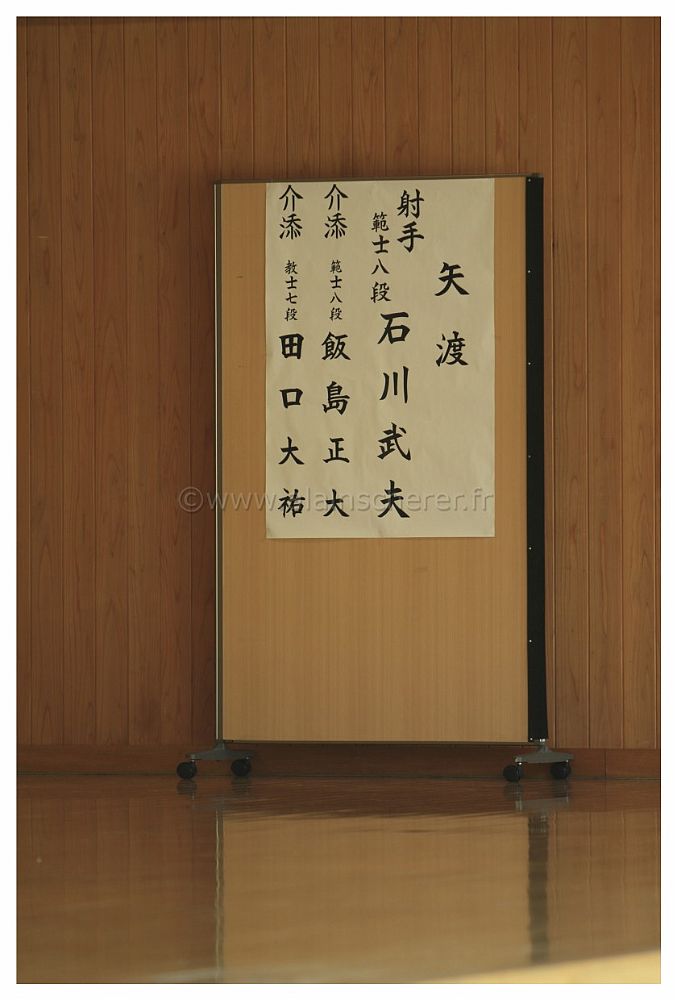 矢渡
射手
範士八段 石川武夫
介添 範士八段 飯島正大
介添 教士七段 田口大祐
©www.alainscherer.fr